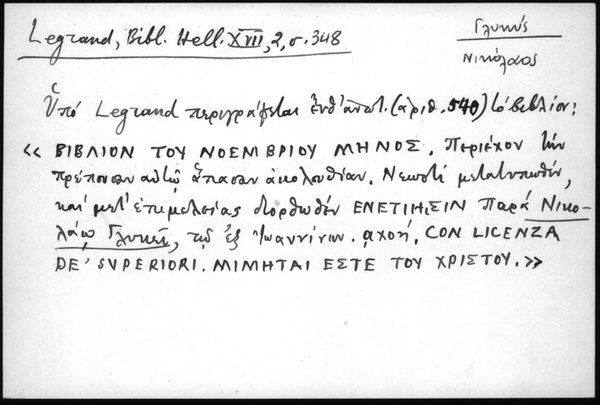 Legrand, Bibl. Hell. XVII, 2, σ. 348
Γλυκύς
Νικόλαος
Ὑπό Legrand περιγράφεται ἐνθ' ἀνωτ. (ἀριθ. 540) τό βιβλίον:
<< ΒΙΒΛΙΟΝ ΤΟΥ ΝΟΕΜΒΡΙΟΥ ΜΗΝΟΣ. Περιέχον τήν
πρέπουσαν αὐτῷ ἅπασαν ἀκολουθίαν. Νεωστί μετατυπωθέν,
καί μετ' ἐπιμελείας διορθωθέν ΕΝΕΤΙΗ,ΣΙΝ παρά Νικο-
λάῳ Γλυκεῖ, τῷ ἐξ Ἰωαννίνων. αχοή, CON LICENZA
DE' SVPERIORI. ΜΙΜΗΤΑΙ ΕΣΤΕ ΤΟΥ ΧΡΙΣΤΟΥ. >>